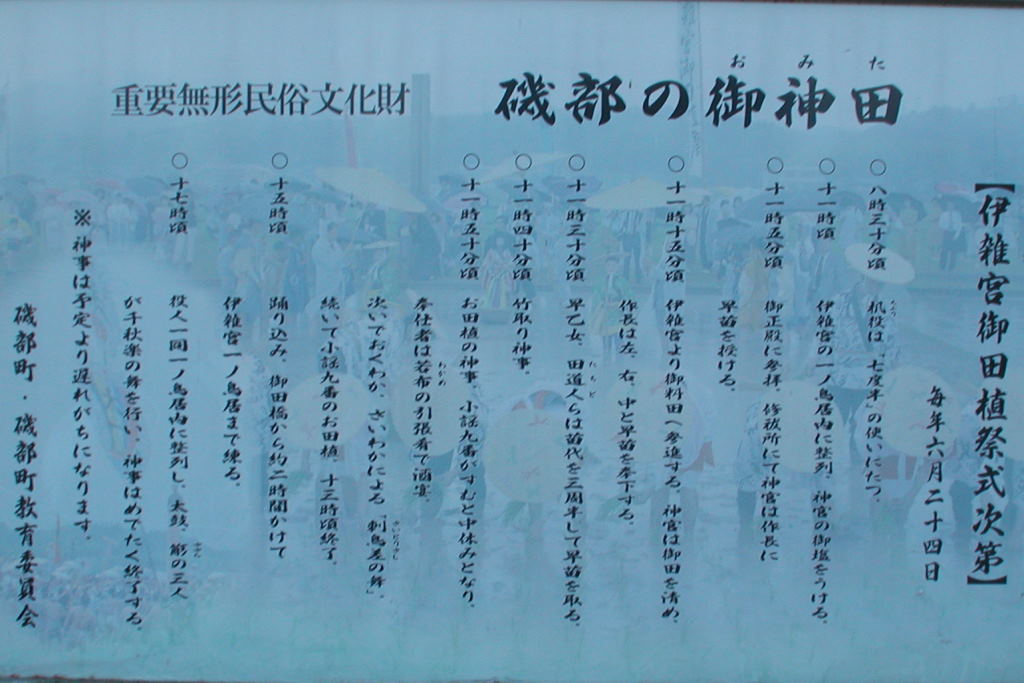 磯部の御神田
おみた
重要無形民俗文化財
【伊雑宮御田植祭式次第】
毎年六月二十四日
○八時三十分頃 机役は、「七度半」の使いにたつ。
○十一時頃 伊雑宮の一ノ鳥居内に整列、神宮の御塩をうける。
○十一時五分頃 御正殿に参拝、修祓所にて神宮は作長に
早苗を授ける。
○十一時十五分頃 伊雑宮より御料田へ参進する。神宮は御田を清め、
作長は左、右、中と早苗を奉下する。
○十一時三十分頃 早乙女、田道人らは苗代を三周半して早苗を取る。
たちど
○十一時四十分頃 竹取り神事。
○十一時五十分頃 お田植の神事。小謡九番がすむと中休みとなり、
奉仕者は若布の引張肴で酒宴。
わかめ
次いでおくわか、さいわかによる「刺鳥差の舞」、
さいとりさし
続いて小謡九番のお田植、十三時頃終了。
○十五時頃 踊り込み、御田橋から約二時間かけて
伊雑宮一ノ鳥居まで練る。
○十七時頃 役人一同一ノ鳥居内に整列し、太鼓、簓の三人
が千秋楽の舞を行い、神事はめでたく終了する。
※神事は予定より遅れがちになります。
磯部町・磯部町教育委員会